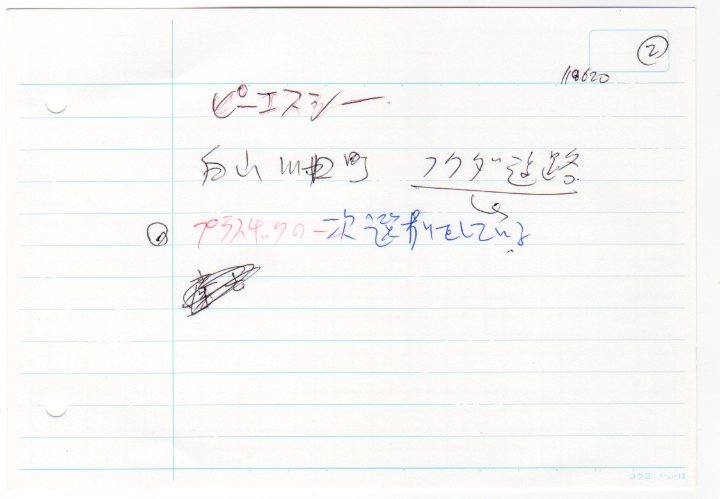 ②
118620
ピーエスシー
白山 町 フクダ道路
プラスチックの一次選別をしている
コクヨ